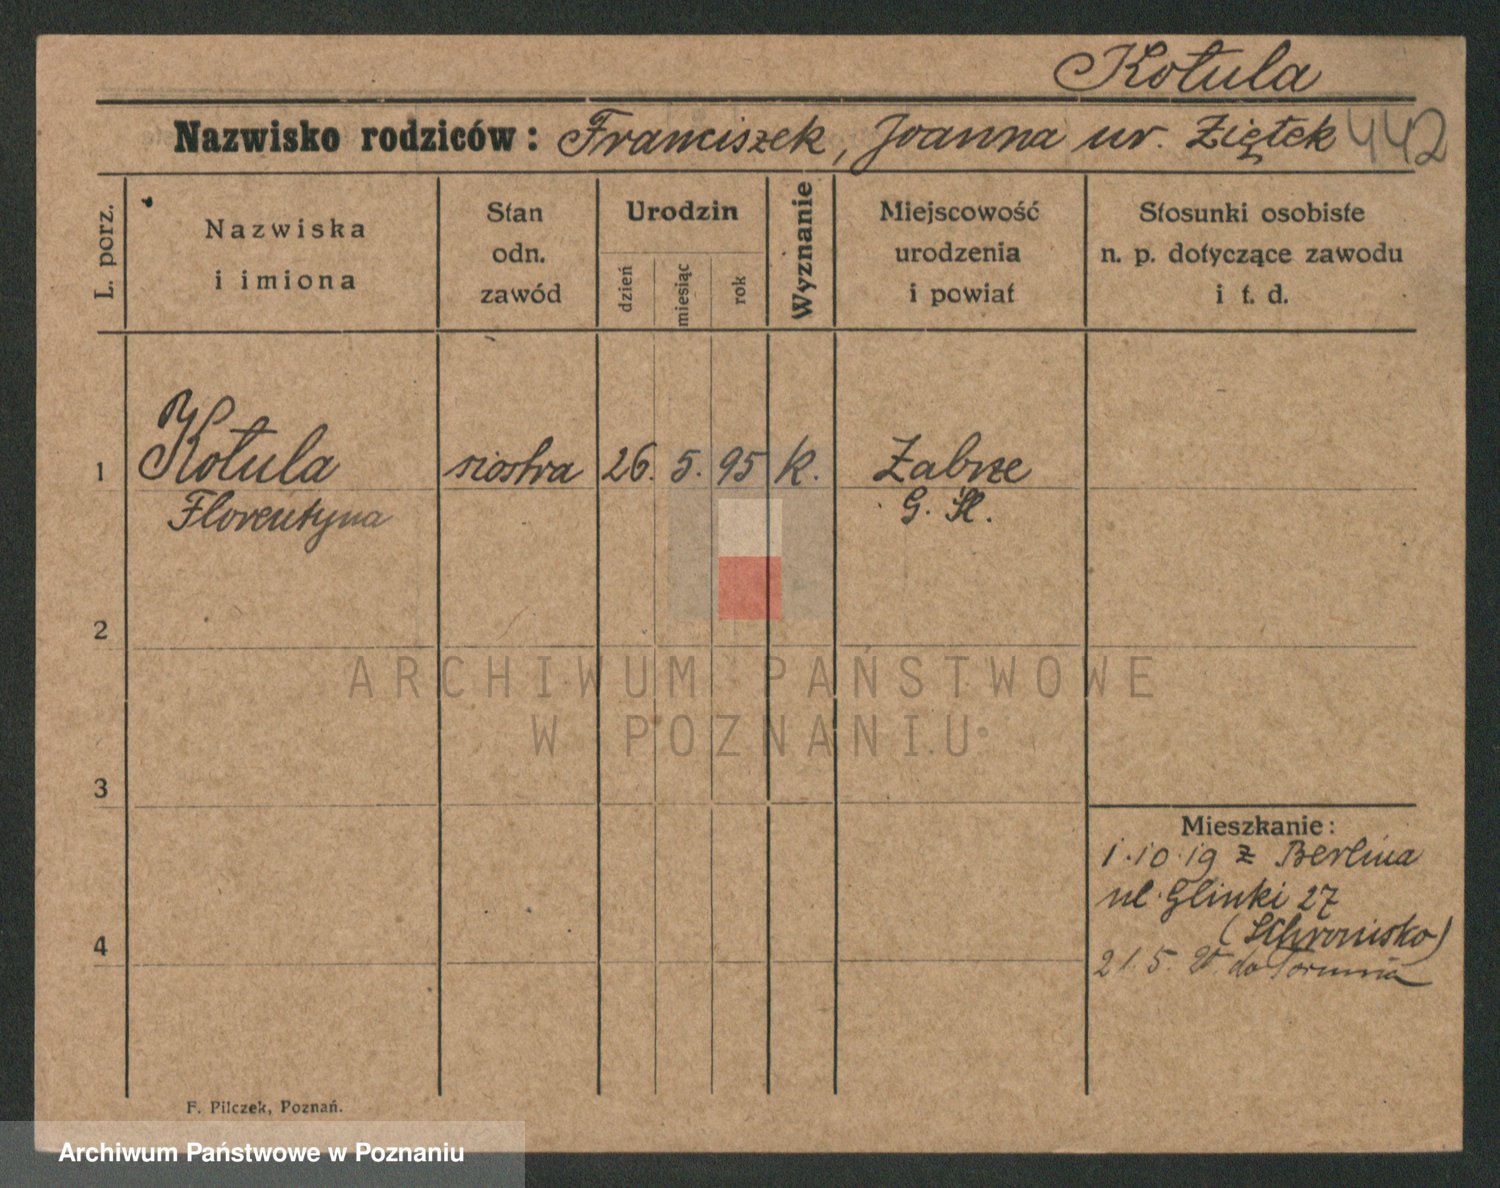 Kotula
Nazwisko rodziców: Franciszek, Joanna ur. Ziętek 442
L. porz.
Nazwiska
i imiona
Stan
odn.
zawód
Urodzin
dzień
miesiąc
rok
Wyznanie
Miejscowość
urodzenia
i powiat
Stosunki osobiste
n. p. dotyczące zawodu
i t. d.
1 Kotula siostra 26. 5. 95 k. Zabrze
Florentyna G. Śl.
2
ARCHIWUM PAŃSTWOWE
W POZNANIU
3
Mieszkanie:
1.10.19 z Berlina
ul. Glinki 27
(Schronisko)
4
21.5. do Torunia
F. Pilczek, Poznań.
Archiwum Państwowe w Poznaniu